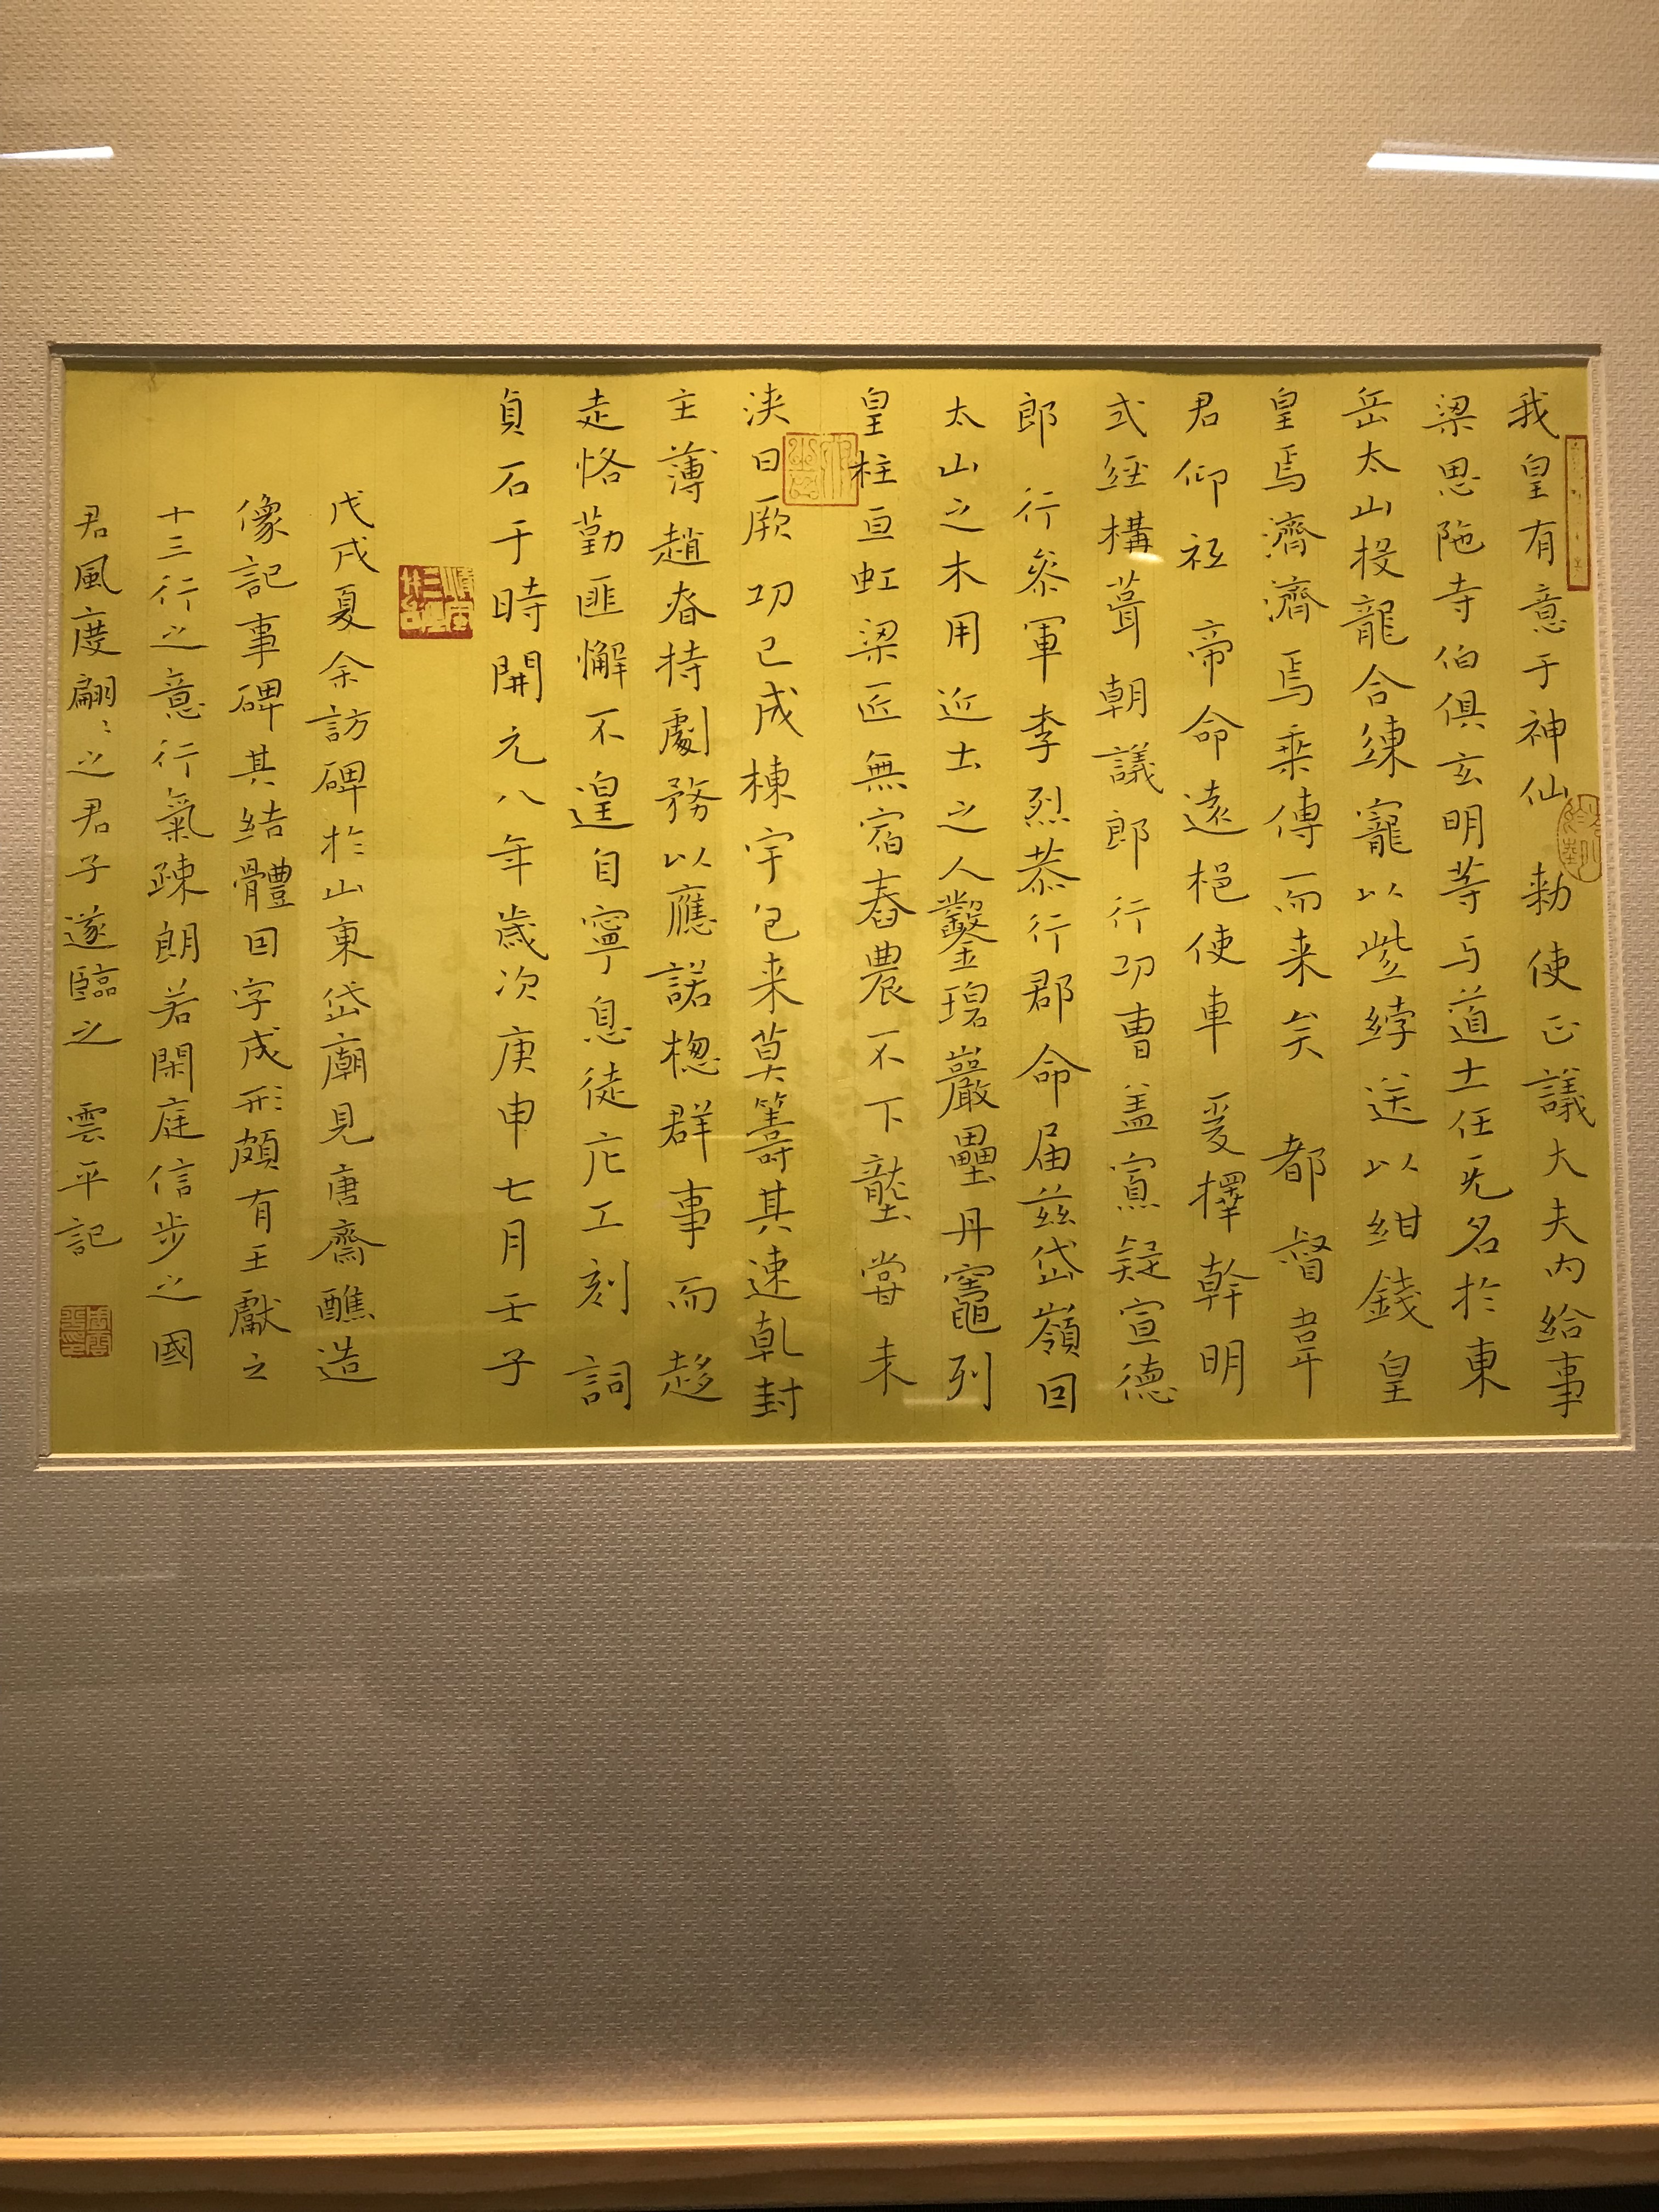 我皇有意于神仙 勑使正議大夫內給事
梁思陁寺伯俱玄明等与道士任无名於東
岳太山投龍合練寵以璽綍送以紺錢皇
皇焉濟濟焉乘傳而来矣 都督韋
君仰祗 帝命遠挹使車 爰擇幹明
式經構葺朝議郎行功曹盖寡疑宣德
郎行叅軍李烈恭行郡命届兹岱嶺回
太山之木用近土之人鑿碧巖壘丹竈列
皇柱亘虹梁匠無宿舂農不下壟嘗未
浹日厥功已成棟宇包来莫籌其速乹封
主薄趙春持劇務以應諾揔群事而趍
走恪勤匪懈不遑自寧息徒庀工刻詞
貞石于時開元八年歲次庚申七月壬子
戊戌夏余訪碑於山東岱廟見唐齋醮造
像記事碑其結體因字成形頗有王獻之
十三行之意行氣疎朗若閑庭信步之國
君風度翩〻之君子遂臨之 雲平記